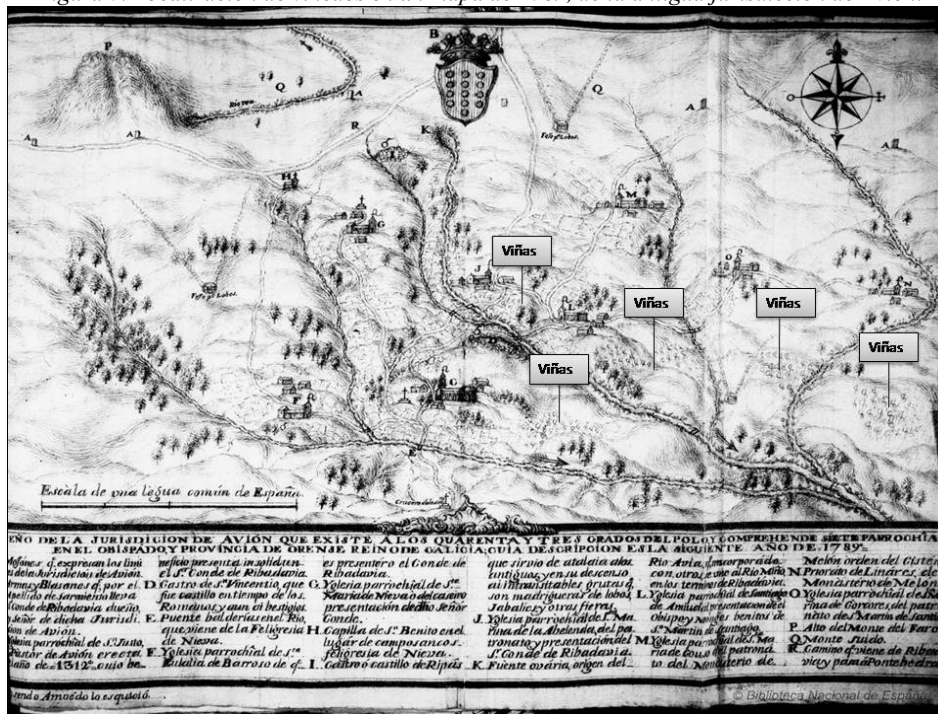 P
B
Q
Q
A
Rio Verdugo
R
K
A
A
A
A
H
I
M
Fojo pª Lobos
G
O
J
Viñas
N
Fojo pª Lobos
L
Viñas
Viñas
Viñas
D
Viñas
C
F
E
Escala de una legua común de España.
DE LA JURISDICION DE AVIÓN QUE EXISTE Á LOS QUARENTA Y TRES GRADOS DEL POLO, Y COMPREHENDE SIETE PARROCHIAS
EN EL OBISPADO, Y PROVINCIA DE ORENSE REINO DE GALICIA; CUIA DESCRIPCION ES LA SIGUIENTE AÑO DE 1787.
Mojones q. expresan los limi
de la Jurisdicion de Avión.
Armas, y Blasones q. por el
apellido de Sarmiento lleva
Conde de Ribadavia dueño,
y Señor de dicha Jurisdi.
ion de Avión.
parrochial de S. Justo,
Pastor de Avión erecta
año de 1312
neficio presenta in solidun
el S. Conde de Ribadavia.
D. Castro de S. Vincenzo que
fue castillo en tiempo de los
Romanos, y aun ai bestigios.
E. Puente balderias en el Rio,
que viene de la Feligresia
de Nieva.
F. Yglesia parrochial de S.
Eulalia de Barroso de q.
es presentero el Conde de
Ribadavia.
G. Yglesia parrochial de S.
Maria de Nieva
presentacion de dho Señor
Conde.
H. Capilla de S. Benito en el
lugar de camposancos
feligresia de Nieva.
I. Castro ó castillo de Ripás
que sirvio de atalaia a los
antiguos, y en su descenso
ai inimitables grutas, q.
son madrigueras de lobos,
Jabalies, y otras fieras.
J. Yglesia parrochial de S. Ma
rina de la Abelenda, del pa
tronato, y presentacion del
S. Conde de Ribadavia.
K. Fuente ovária, origen del
Rio Avia, q. incorporado
con otros, e vie al Rio Miño
en los terminos de Ribadavia.
L. Yglesia parrochial de Santiago
de Amiudal, presentacion de el
Obispo, y Monges benitos de
S. Martin de Santiago.
M. Yglesia parrochial de S. Ma
ria de Couso del patrona
to del Monasterio de
Melon orden del Cister
N. Priorato de Linares, de
Monasterio de Melon
O. Yglesia parrochial de S. Ma
rina de Corcores, del patro
nato de S. Martin de Santiago
P. Alto del Monte del Faro
Q. Monte Suido.
R. Camino q. viene de Ribada
via, y pasa á Pontebedra
© Biblioteca Nacional de España